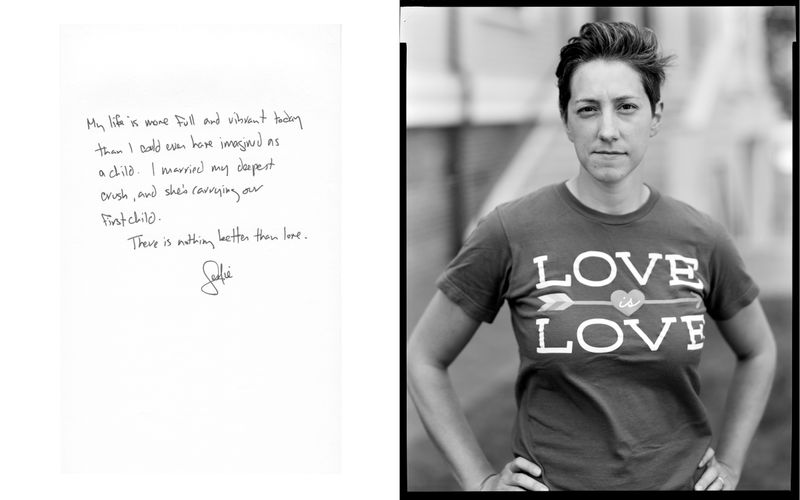 My life is more full and vibrant today
than I could even have imagined as
a child. I married my deepest
crush, and she's carrying our
first child.
There is nothing better than love.
LOVE
is
LOVE